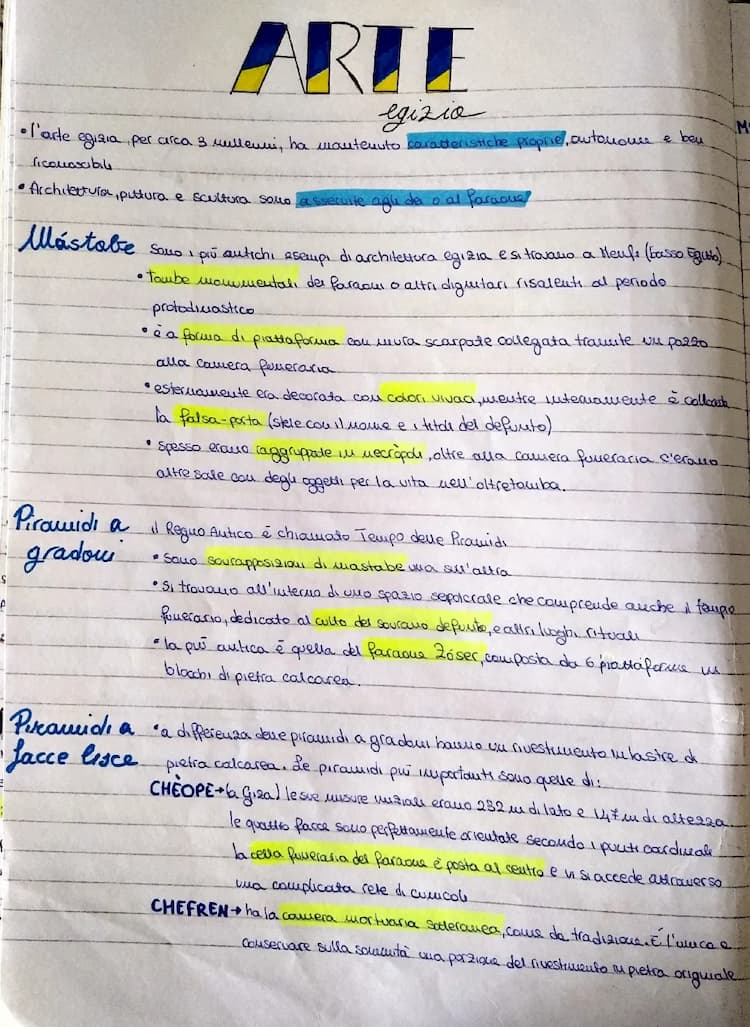 ARTE
egizia
• l'arte egizia, per circa 3 millenni, ha mantenuto caratteristiche proprie, autonome e ben
riconoscibili
• Architettura, pittura e scultura sono asservite agli dei o al faraone
Mástabe sono i più antichi esempi di architettura egizia e si trovano a Menfi (basso Egitto)
• Tombe monumentali dei faraoni o altri dignitari risalenti al periodo
protodinastico
• è a forma di piattaforma con mura scarpate collegata tramite un pozzo
alla camera funeraria
• esternamente era decorata con colori vivaci, mentre internamente è collocata
la falsa-porta (stele con il nome e i titoli del defunto)
• spesso erano raggruppate in necròpoli, oltre alla camera funeraria c'erano
altre sale con degli oggetti per la vita nell'oltretomba.
Piramidi a gradoni il Regno Antico è chiamato Tempo delle Piramidi
• sono sovrapposizioni di mastabe una sull'altra
• si trovano all'interno di uno spazio sepolcrale che comprende anche il tempio
funerario, dedicato al culto del sovrano defunto, e altri luoghi rituali
• la più antica è quella del faraone Zóser, composta da 6 piattaforme in
blocchi di pietra calcarea.
Piramidi a facce lisce • a differenza delle piramidi a gradoni hanno un rivestimento in lastre di
pietra calcarea. Le piramidi più importanti sono quelle di:
CHÈOPE→ (a Giza) le sue misure iniziali erano 232 m di lato e 147 m di altezza
le quattro facce sono perfettamente orientate secondo i punti cardinali
la cella funeraria del faraone è posta al centro e vi si accede attraverso
una complicata rete di cunicoli
CHEFREN→ ha la camera mortuaria sotteranea, come da tradizione. È l'unica a
conservare sulla sommità una porzione del rivestimento in pietra originale